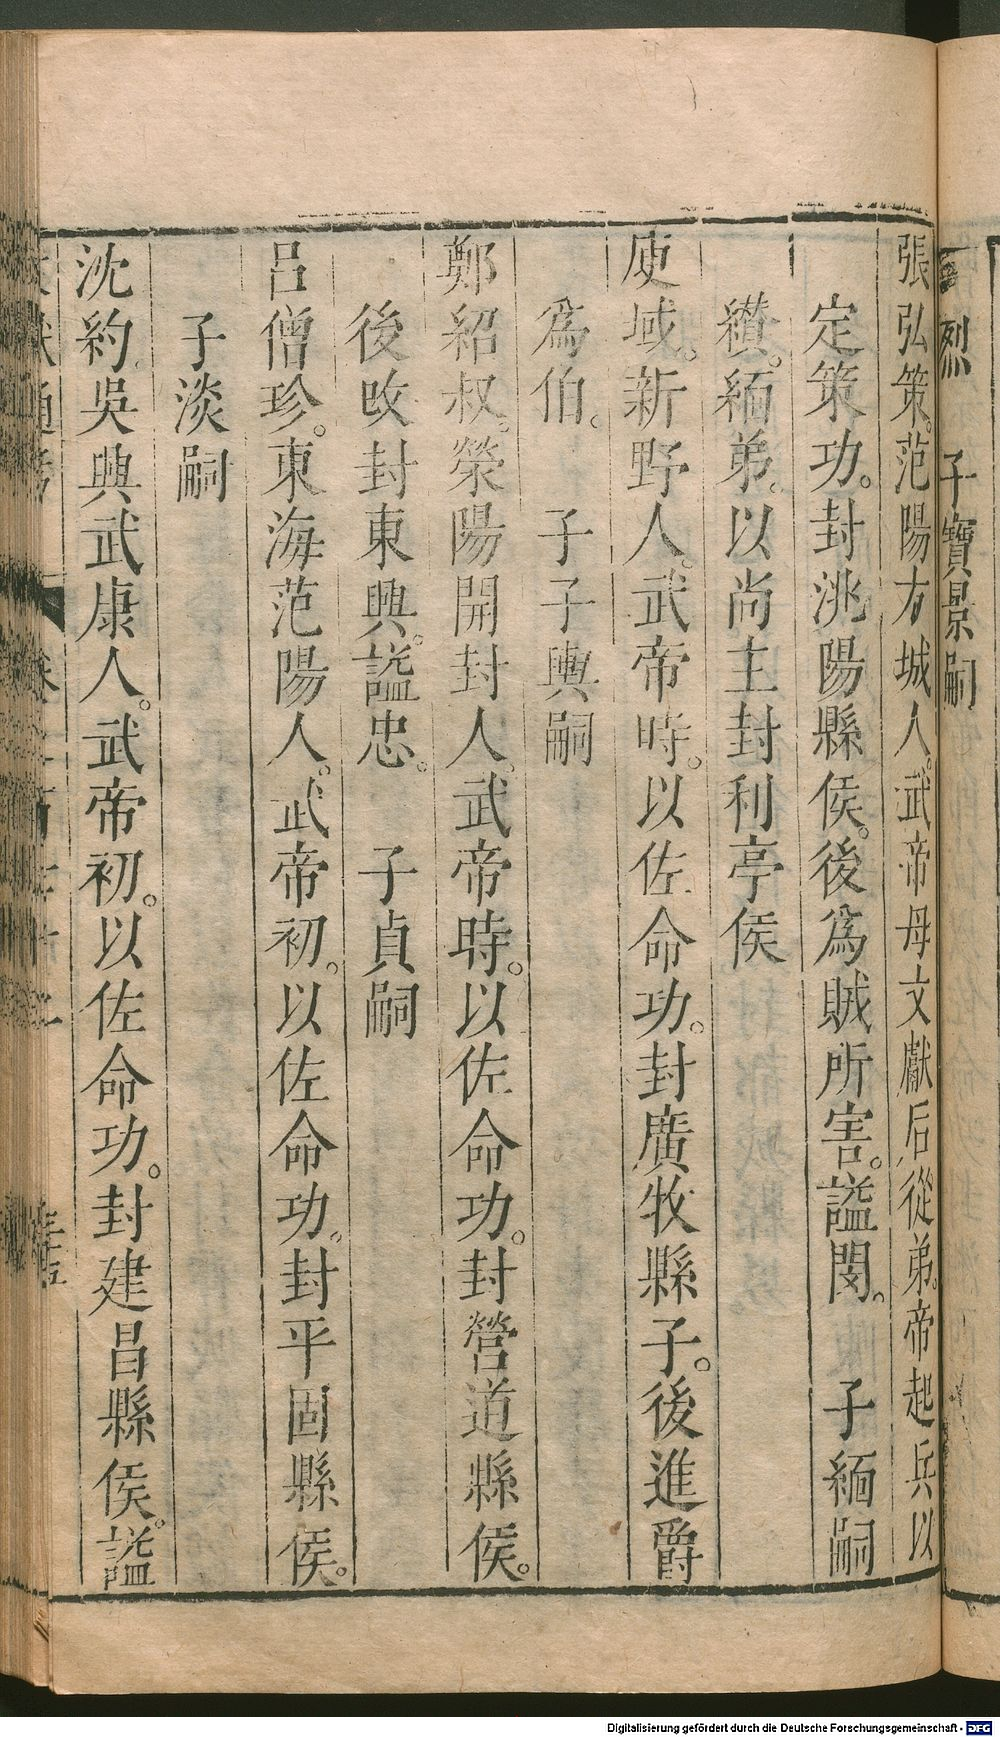 烈　子寶景嗣
張弘策。范陽方城人。武帝母文獻后從弟。帝起兵以
定策功。封洮陽縣侯。後為賊所害。謚閔。　子緬嗣
纉。緬弟。以尚主封利亭侯
庾域。新野人。武帝時。以佐命功。封廣牧縣子。後進爵
為伯。　子子輿嗣
鄭紹叔。滎陽開封人。武帝時。以佐命功。封營道縣侯。
後改封東興。謚忠。　子貞嗣
呂僧珍。東海范陽人。武帝初。以佐命功。封平固縣侯。
子淡嗣
沈約。吳興武康人。武帝初。以佐命功。封建昌縣侯。謚
Digitalisierung gefördert durch die Deutsche Forschungsgemeinschaft - DFG